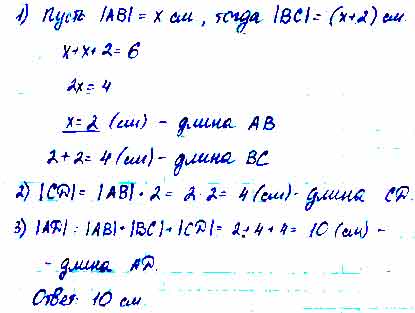 1) Пусть |AB| = x см, тогда |BC| = (x+2) см.
x+x+2=6
2x=4
x=2 (см) - длина AB
2+2=4 (см) - длина BC
2) |CD| = |AB| · 2 = 2 · 2 = 4 (см) - длина CD.
3) |AD| = |AB| + |BC| + |CD| = 2+4+4 = 10 (см) -
- длина AD.
Ответ: 10 см.